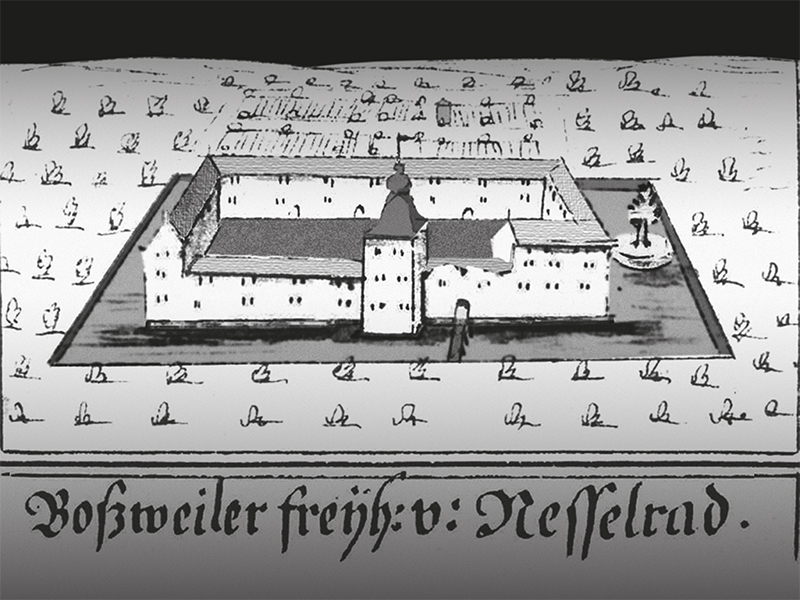 Boßweiler freÿh: v: Nesselrad.